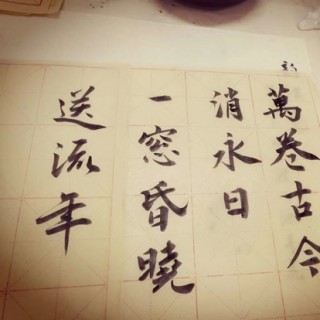 萬卷古今
消永日
一窓昏曉
送流年